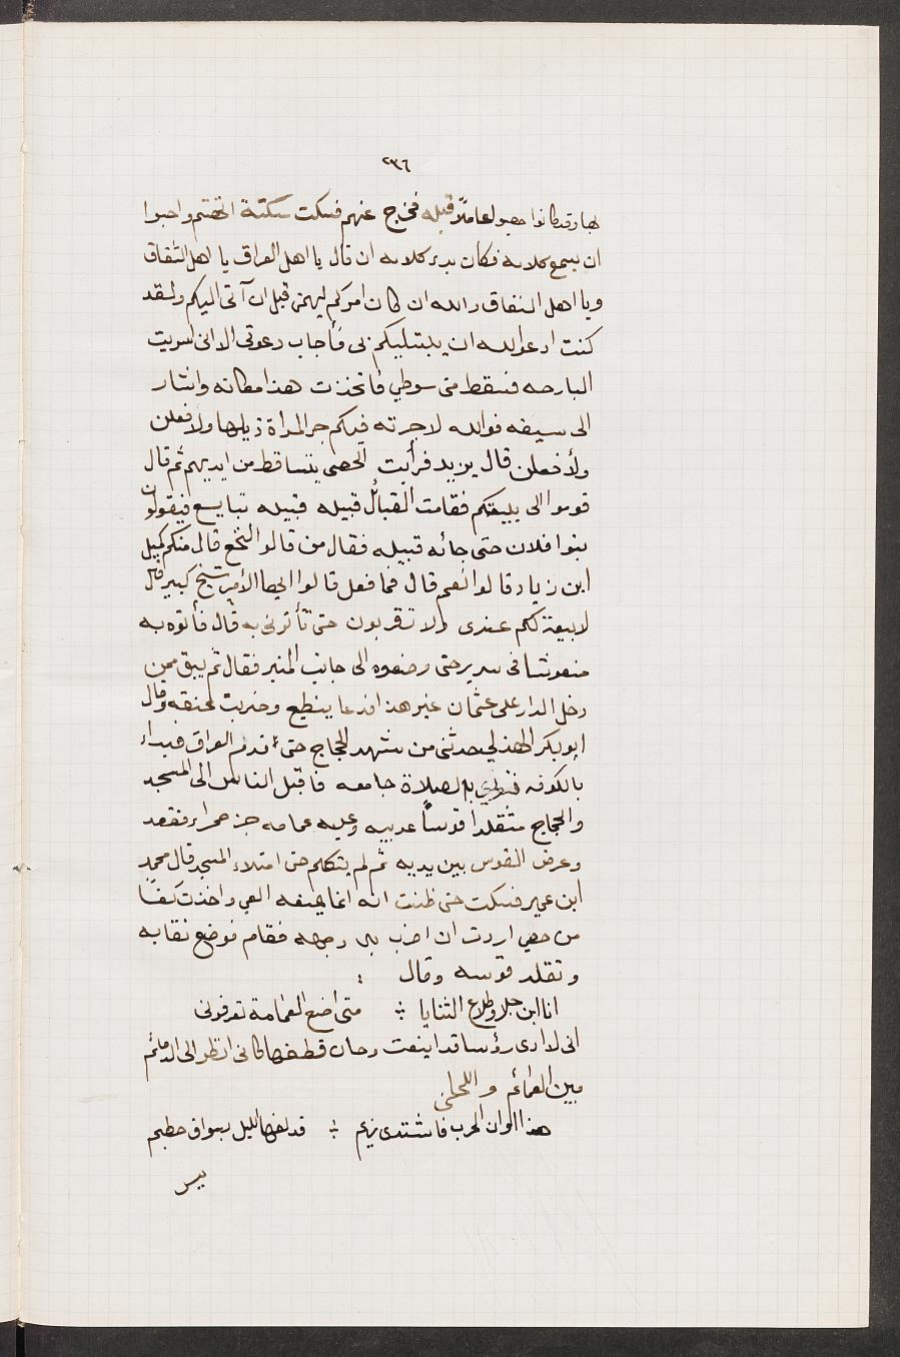 ٢٣٦
بها وقد كانوا حصبوا عاملًا قبله فخرج عنهم فسكت سكتة اتهم واحبوا
ان يسمع كلامه فكان بدء كلامه ان قال يا اهل العراق يا اهل الشقاق
ويا اهل النفاق والله ان كان امركم ليهمنى قبل ان آتى اليكم ولقد
كنت ادعو الله ان يبتليكم بى فأجاب دعوتى الا انى اسريت
البارحه فسقط منى سوطي فاتخذت هذا مكانه واشار
الى سيفه فوالله لاجرنه فيكم جر المراة ذيلها ولأفعلن
ولأفعلن قال يزيد فرأيت الحصى يتساقط من ايديهم ثم قال
قوموا الى بيعتكم فقامت القبائل قبيله قبيله تبايع فيقولون
بنوا فلان حتى جائه قبيله فقال من قالوا النخع قال منكم كميل
ابن زياد قالوا نعم قال فما فعل قالوا ايها الأمير شيخ كبير قال
لا بيعة لكم عندى ولا تقربون حتى تأتونى به قال فأتوه به
منعوشا فى سرير حتى وضعوه الى جانب المنبر فقال لم يبق ممن
دخل الدار على عثمان غير هذا فدعا بنطع وضربت عنقه وقال
ابو بكر الهذلي حدثنى من شهد الحجاج حتى قدم العراق فبداء
بالكوفه فنودي بالصلاة جامعه فاقبل الناس الى المسجد
والحجاج متقلدا قوساً عربيه وعليه عمامه خز حمراء فقعد
وعرض القوس بين يديه ثم لم يتكلم حتى امتلاء المسجد قال محمد
ابن عمير فسكت حتى ظننت انه انما يمنعه العي واخذت كفًا
من حصي اردت ان اضرب به وجهه فقام فوضع نقابه
وتقلد قوسه وقال :
انا ابن جلا وطلاع الثنايا ∴ متى اضع العمامة تعرفونى
انى لا ارى رؤسا قد اينعت وحان قطفها كانى انظر الى الدمائم
بين العمائم واللحى
هذا اوان الحرب فاشتدى زيم ∴ قد لفها الليل بسواق حطم
ليس